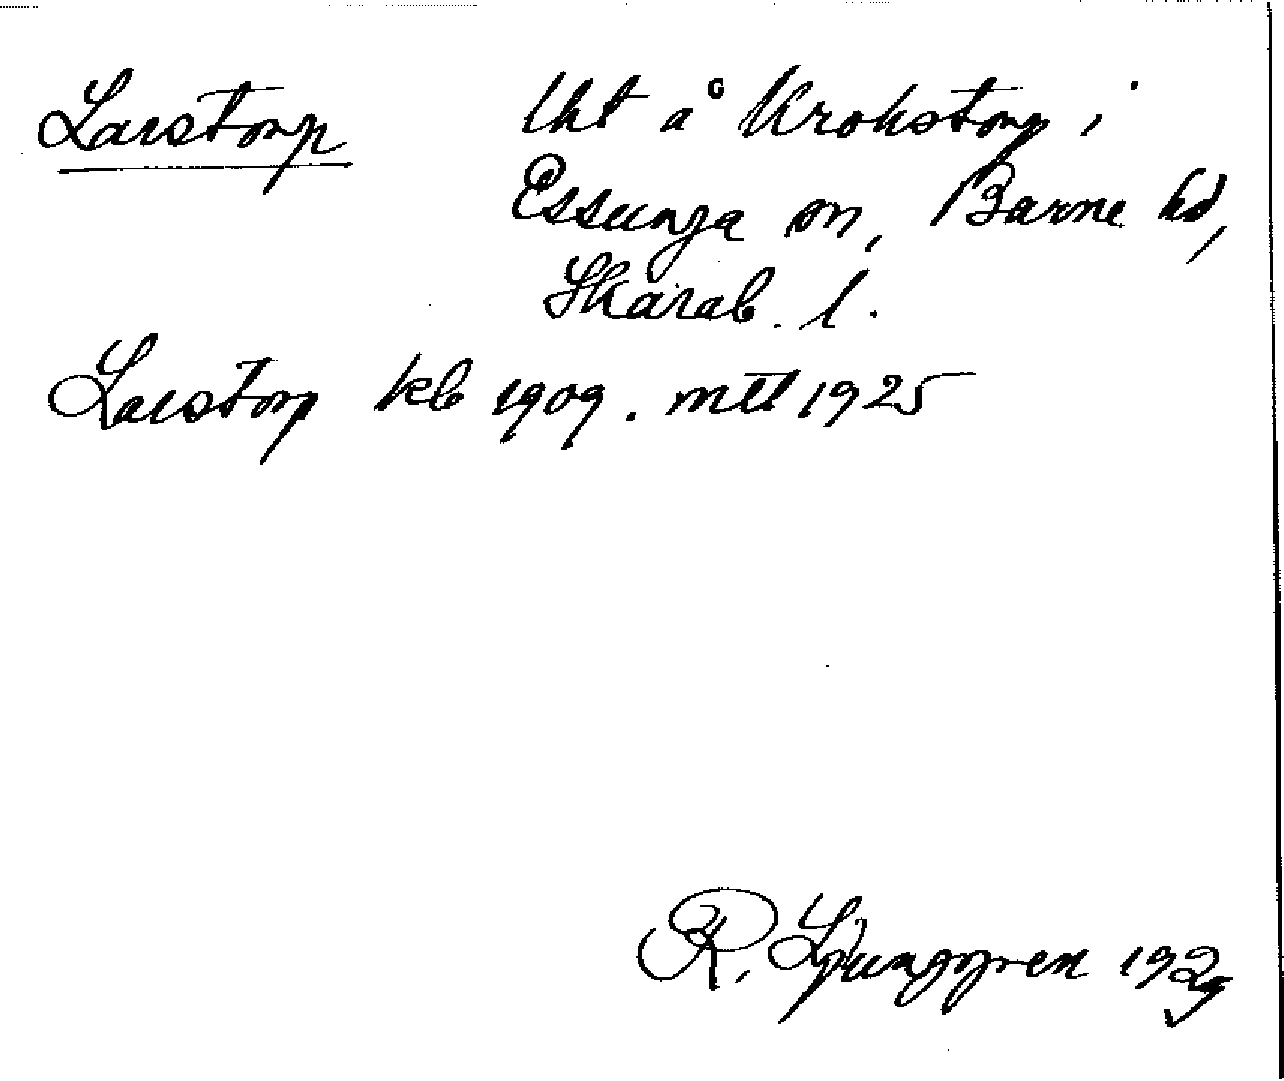 Larstorp lht å Krokstorp i
Essunga sn, Barne hd,
Skarab. l.
Larstorp kb 1909. mtl 1925
R. Ljunggren 1929